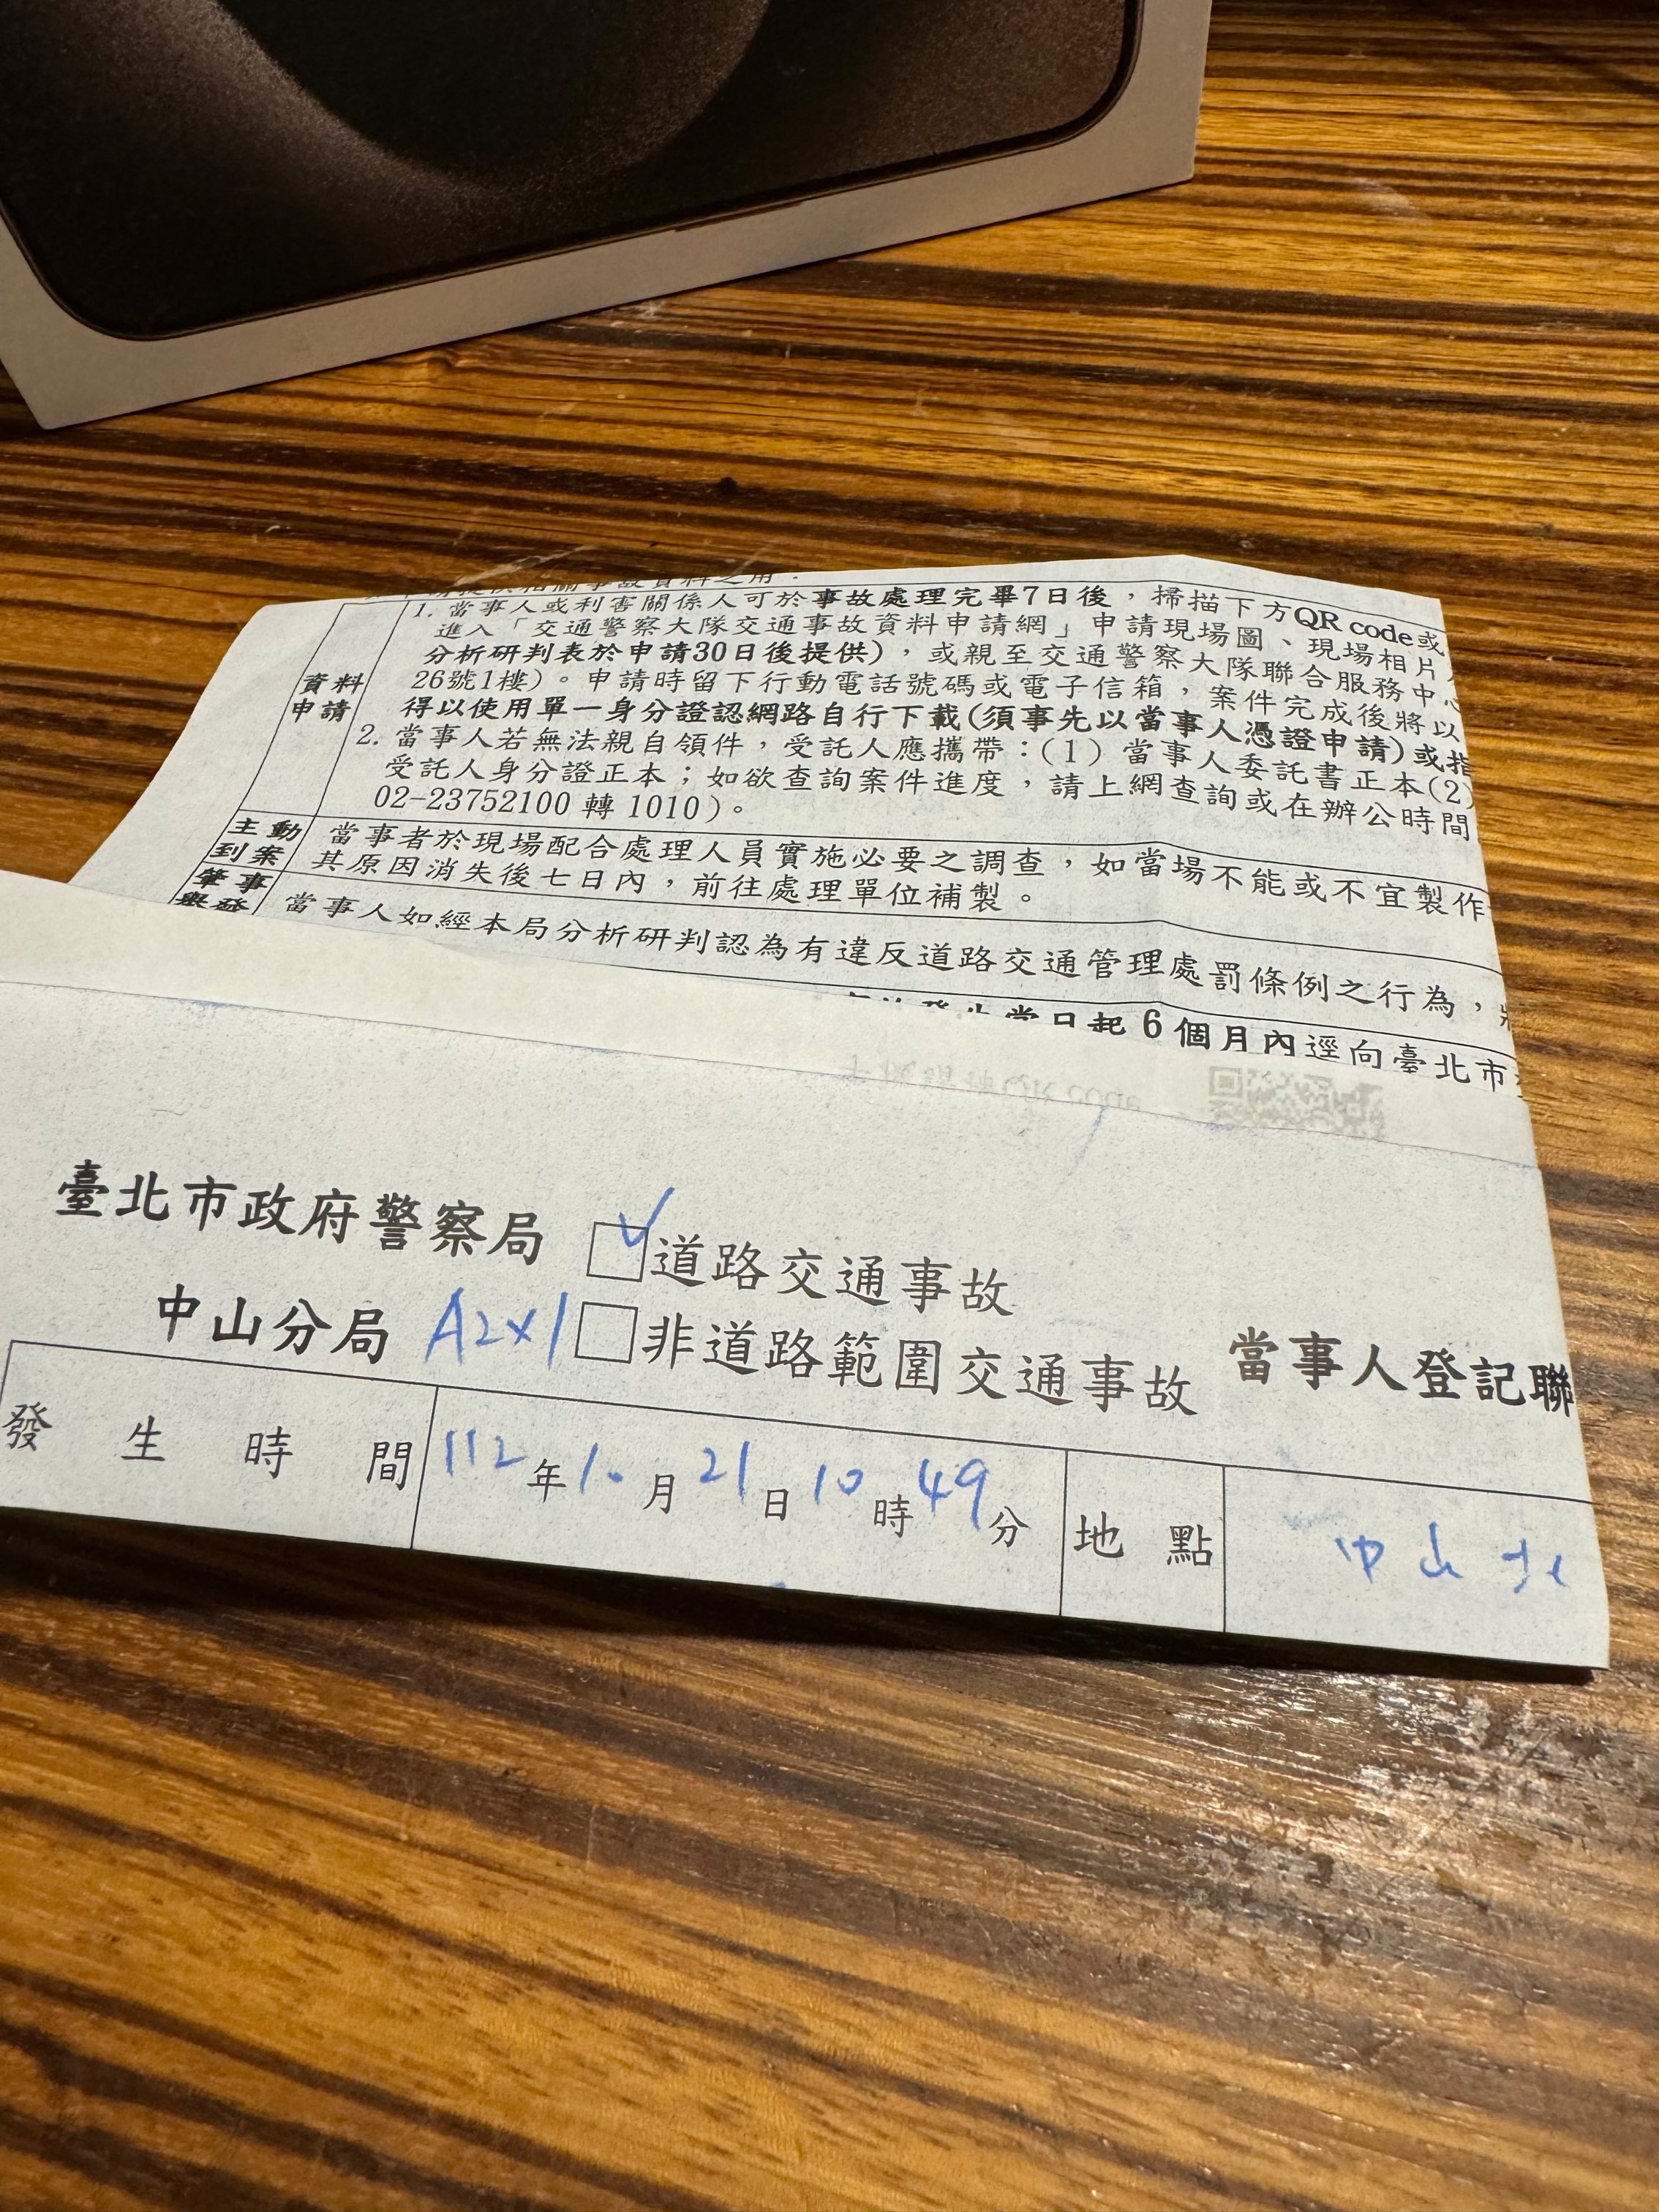 1. 當事人或利害關係人可於事故處理完畢7日後，掃描下方QR code或
進入「交通警察大隊交通事故資料申請網」申請現場圖、現場相片
分析研判表於申請30日後提供)，或親至交通警察大隊聯合服務中心
資料申請
26號1樓)。申請時留下行動電話號碼或電子信箱，案件完成後將以
得以使用單一身分證認網路自行下載(須事先以當事人憑證申請)或指
2. 當事人若無法親自領件，受託人應攜帶：(1) 當事人委託書正本(2)
受託人身分證正本；如欲查詢案件進度，請上網查詢或在辦公時間
02-23752100 轉 1010)。
主動到案
當事者於現場配合處理人員實施必要之調查，如當場不能或不宜製作
其原因消失後七日內，前往處理單位補製。
肇事舉發
當事人如經本局分析研判認為有違反道路交通管理處罰條例之行為，
當日起 6 個月內逕向臺北市
臺北市政府警察局 ☑道路交通事故
中山分局 A2x1 □非道路範圍交通事故 當事人登記聯
發生時間 112年10月21日10時49分 地點 中山北